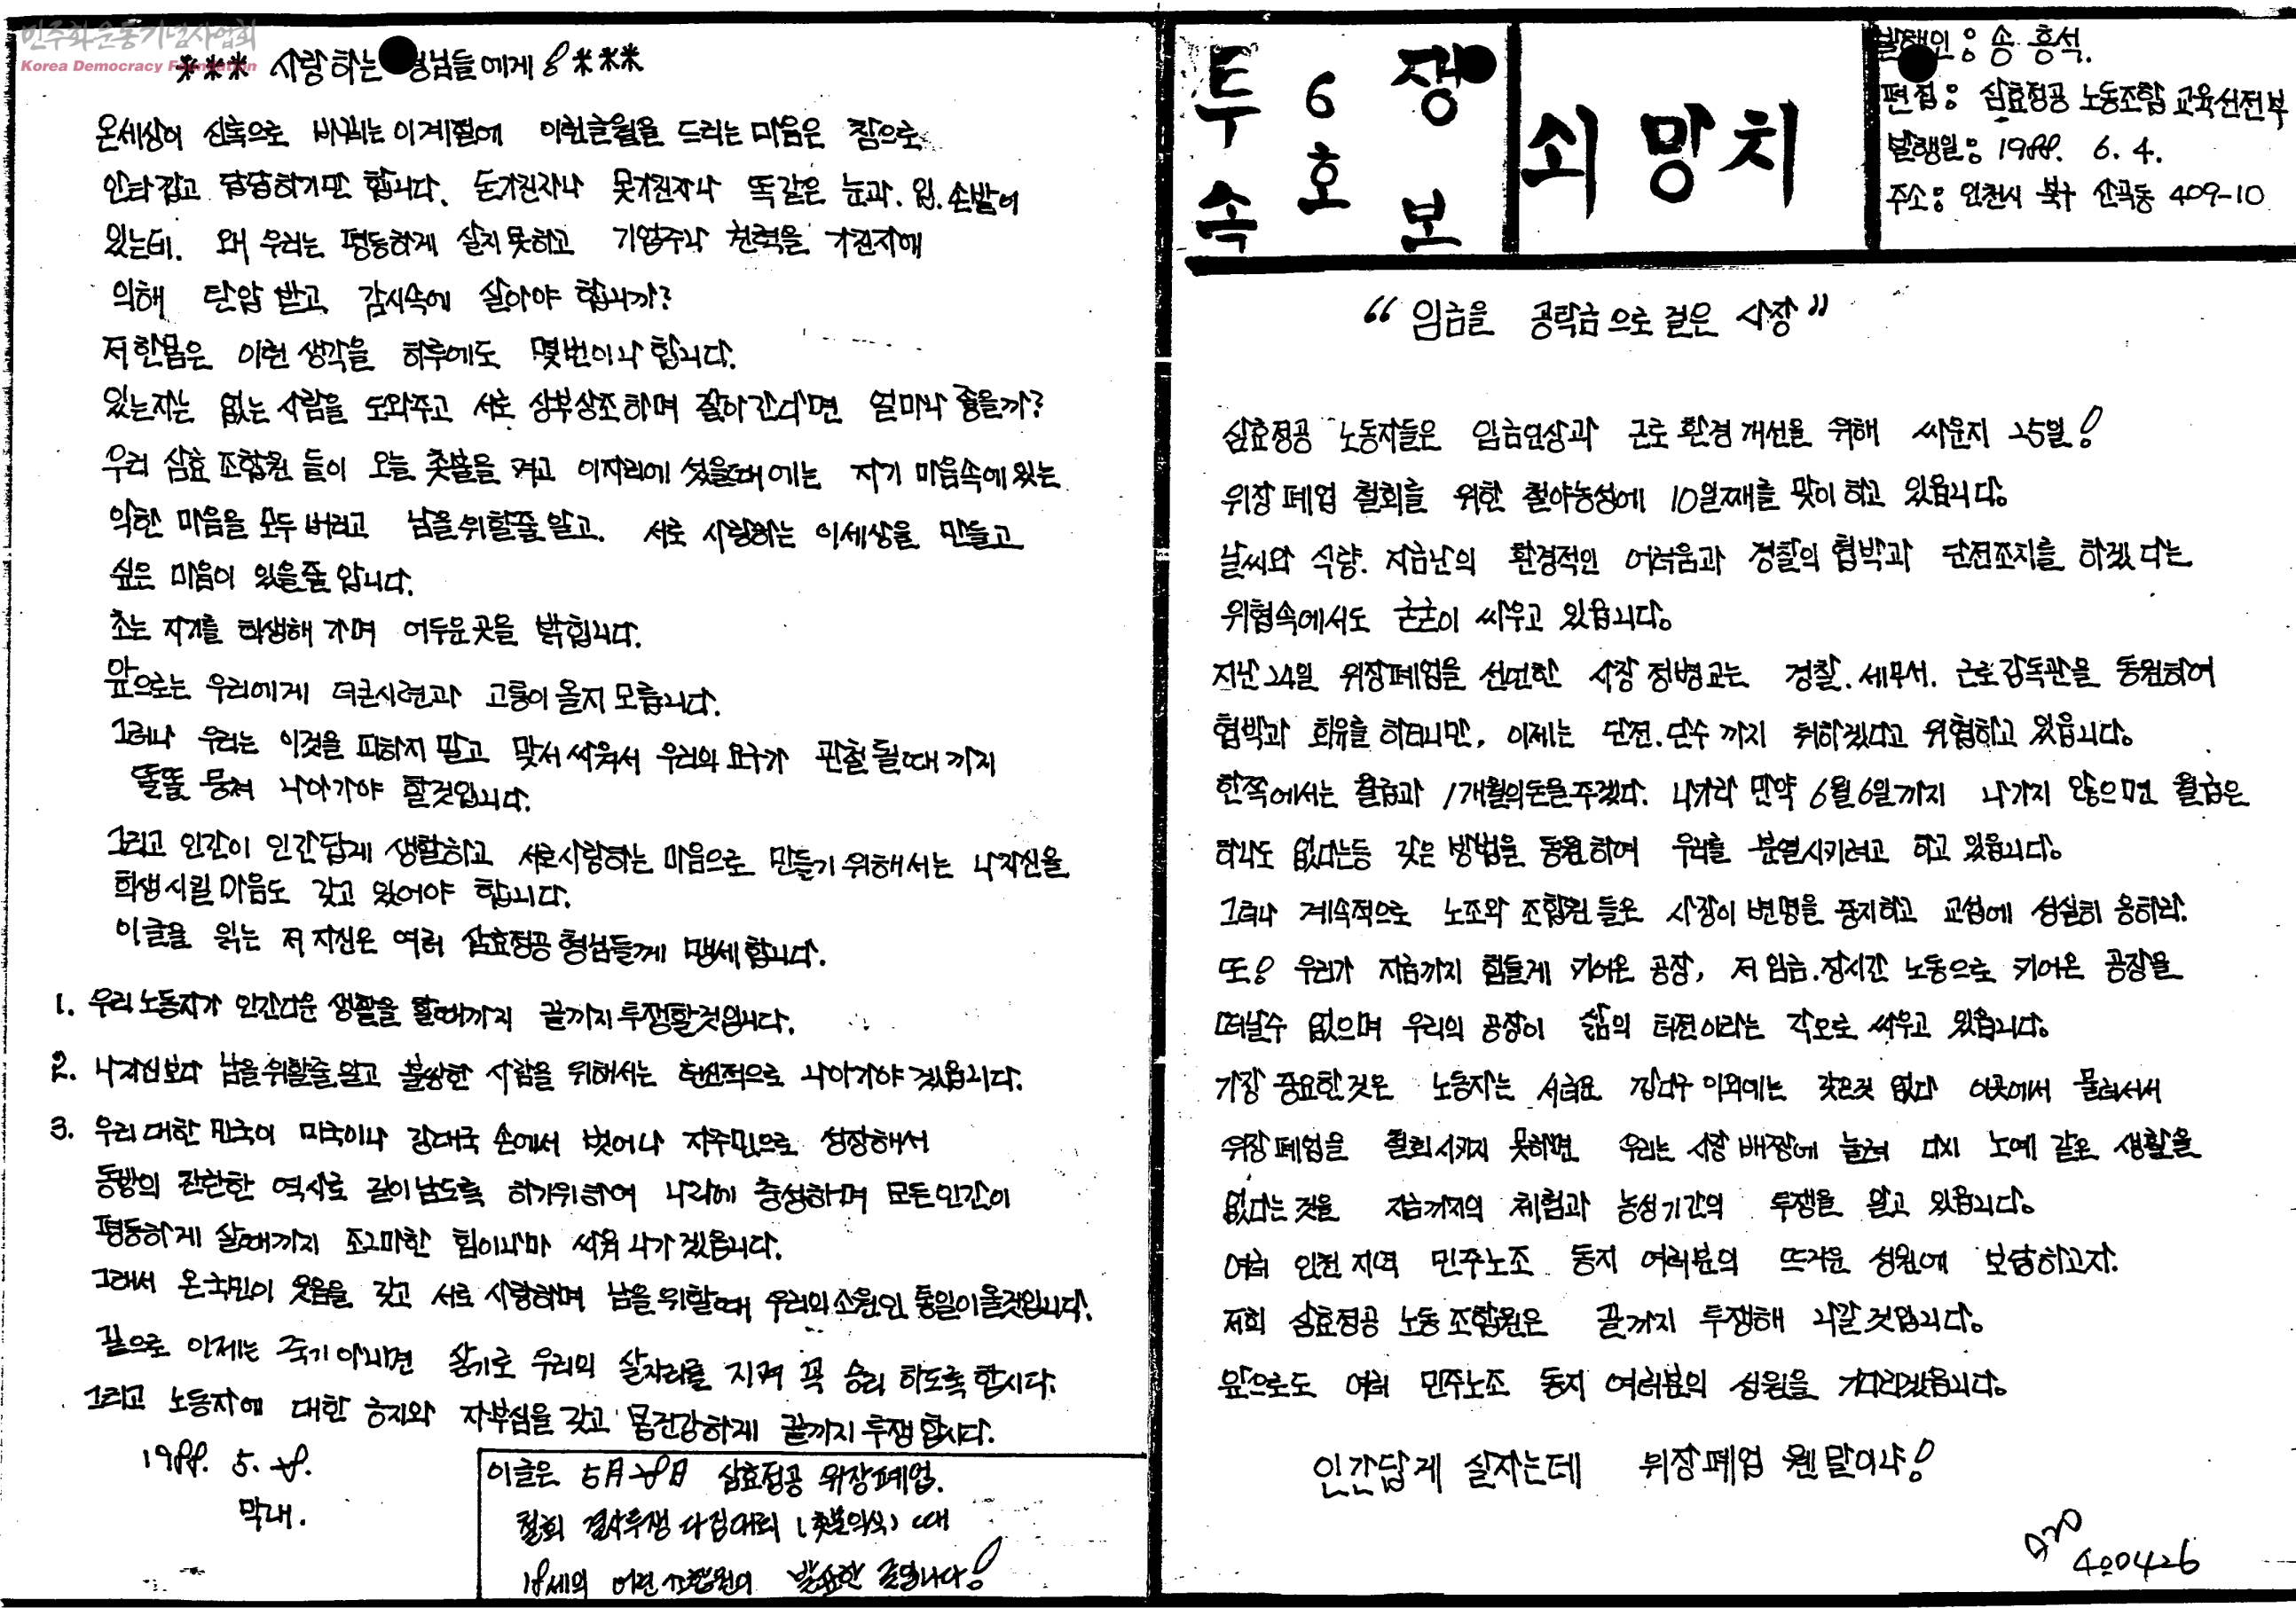 민주화운동기념사업회
Korea Democracy Foundation
*** 사랑하는 형님들에게! ***
온세상이 신록으로 바뀌는 이계절에 이런글월을 드리는 마음은 참으로
안타깝고 답답하기만 합니다. 돈가진자나 못가진자나 똑같은 눈과. 입. 손발이
있는데. 왜 우리는 평등하게 살지못하고 기업주나 권력을 가진자에
의해 탄압 받고 감시속에 살아야 합니까?
저한몸은 이런 생각을 하루에도 몇번이나 합니다.
있는자는 없는 사람을 도와주고 서로 상부상조하며 살아간다면 얼마나 좋을까?
우리 삼효 조합원 들이 오늘 촛불을 켜고 이자리에 섰을때에는 자기 마음속에 있는
악한 마음을 모두 버리고 남을위할줄 알고. 서로 사랑하는 이세상을 만들고
싶은 마음이 있을줄 압니다.
초는 자기를 희생해 가며 어두운곳을 밝힙니다.
앞으로는 우리에게 더큰시련과 고통이 올지 모릅니다.
그러나 우리는 이것을 피하지 말고 맞서 싸워서 우리의 요구가 관철 될때 까지
똘똘 뭉쳐 나아가야 할것입니다.
그리고 인간이 인간답게 생활하고 서로사랑하는 마음으로 만들기 위해서는 나 자신을
희생시킬 마음도 갖고 있어야 합니다.
이글을 읽는 저 자신은 여러 삼효정공 형님들께 맹세합니다.
1. 우리노동자가 인간다운 생활을 할때까지 끝까지 투쟁할것입니다.
2. 나자신보다 남을위할줄알고 불쌍한 사람을 위해서는 헌신적으로 나아가야 겠읍니다.
3. 우리 대한 민국이 미국이나 강대국 손에서 벗어나 자주민으로 성장해서
동방의 찬란한 역사로 길이남도록 하기위하여 나라에 충성하며 모든인간이
평등하게 살때까지 조그마한 힘이나마 싸워 나가겠읍니다.
그래서 온국민이 웃음을 갖고 서로 사랑하며 남을 위할때 우리의 소원인 통일이올것입니다.
끝으로 이제는 죽기 아니면 살기로 우리의 살자리를 지켜 꼭 승리 하도록 합시다.
그리고 노동자에 대한 긍지와 자부심을 갖고 몸건강하게 끝까지 투쟁 합시다.
1988. 5. 28.
막내.
이글은 5月 28日 삼효정공 위장폐업.
철회 결사투쟁 다짐대회 (촛불의식) 때
18세의 어린 조합원이 발표한 글입니다!
투쟁
6호
속보
쇠망치
발행인: 송 흥석.
편집: 삼효정공 노동조합 교육선전부
발행일: 1988. 6. 4.
주소: 인천시 북구 산곡동 409-10
"임금을 공탁금으로 걸은 사장"
삼효정공 노동자들은 임금인상과 근로 환경 개선을 위해 싸운지 25일!
위장폐업 철회를 위한 철야농성에 10일째를 맞이하고 있읍니다.
날씨와 식량. 자금난의 환경적인 어려움과 경찰의 협박과 단전조치를 하겠다는
위협속에서도 굳굳이 싸우고 있읍니다.
지난 24일 위장폐업을 선언한 사장 정병교는 경찰. 세무서. 근로감독관을 동원하여
협박과 회유를 하더니만, 이제는 단전. 단수 까지 취하겠다고 위협하고 있읍니다.
한쪽에서는 월급과 1개월의돈을주겠다. 나가라 만약 6월6일까지 나가지 않으면 월급은
하나도 없다는등 갖은 방법을 동원하여 우리를 분열시키려고 하고 있읍니다.
그러나 계속적으로 노조와 조합원 들은 사장이 변명을 중지하고 교섭에 성실히 응하라.
또! 우리가 지금까지 힘들게 키어온 공장, 저임금. 장시간 노동으로 키어온 공장을
떠날수 없으며 우리의 공장이 삶의 터전이라는 각오로 싸우고 있읍니다.
가장 중요한것은 노동자는 서러움 이외에는 갖은것 없다 이곳에서 물러서서
위장폐업을 철회시키지 못하면 우리는 사장 배짱에 눌려 다시 노예 같은 생활을
없다는 것을 지금까지의 체험과 농성기간의 투쟁을 알고 있읍니다.
여러 인천 지역 민주노조 동지 여러분의 뜨거운 성원에 보답하고자.
저희 삼효정공 노동 조합원은 끝까지 투쟁해 나갈것입니다.
앞으로도 여러 민주노조 동지 여러분의 성원을 기다리겠읍니다.
인간답게 살자는데 위장폐업 웬말이냐!
400426